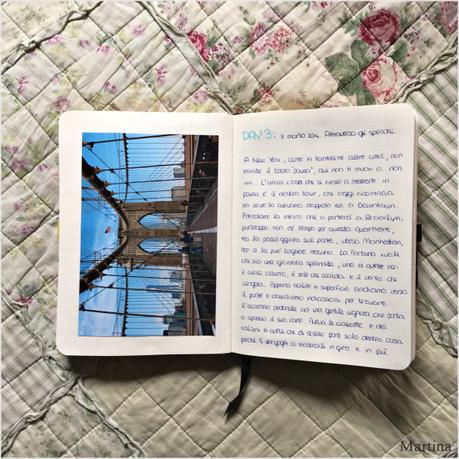 DAY 3: 8 marzo 2014. Attraverso gli specchi.
A New York, come in tantissime altre città, non
esiste il tasto "pausa", qui non ti muovi e non
vivi. L'unica cosa che si riesce a mettere in
pausa è il nostro tour, che oggi ricomincia
da dove lo avevamo stoppato ieri a Downtown.
Prendiamo la metro che ci porterà a Brooklyn,
purtroppo non c'è tempo per questo quartiere,
ma la passeggiata sul ponte, verso Manhattan,
non ce la può togliere nessuno. La fortuna vuole
che sia una giornata splendida, una di quelle con
il cielo azzurro, il sole che scalda e il vento che
congela. Appena salite in superficie andiamo verso
il ponte e chiediamo indicazioni per trovare
l'accesso pedonale ad una gentile signora che porta
a spasso il suo cane. Avevo le calzette e dei
calzini a quelli che di solito porti solo dentro casa
perché ti vergogni a mostrarli in giro e in più
Martina